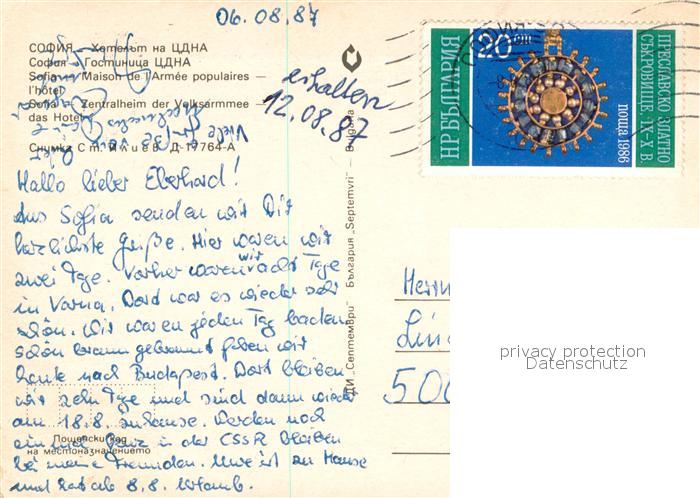 06.08.87
СОФИЯ — Хотелът на ЦДНА
София — Гостиница ЦДНА
Sofia — Maison de l'Armée populaires —
l'hôtel
Sofia — Zentralheim der Volksarmmee —
das Hotel
Снимка Ст. Илиев Д-17764-А
erhalten
12.08.87
Viele Grüße
Hallo lieber Eberhard!
Aus Sofia senden wir Dir
herzlichste Grüße. Hier waren wir
zwei Tage. Vorher waren wir acht Tage
in Varna. Dort war es wieder sehr
schön. Wir waren jeden Tag baden.
schön braun gebrannt fahren wir
heute nach Budapest. Dort bleiben
wir zehn Tage und sind dann wieder
am 18.8. zuhause. Werden noch
einmal kurz in der CSSR bleiben
bei meine Freunden. Uwe ist zu Hause
und hat ab 8.8. Urlaub.
Пощенски код
на местоназначението
ДИ „Септември" България „Septemvri" — Bulgaria
НР БЪЛГАРИЯ
20
ПРЕСЛАВСКО ЗЛАТНО
СЪКРОВИЩЕ, IX-X В.
поща 1986
Herrn
500
privacy protection
Datenschutz